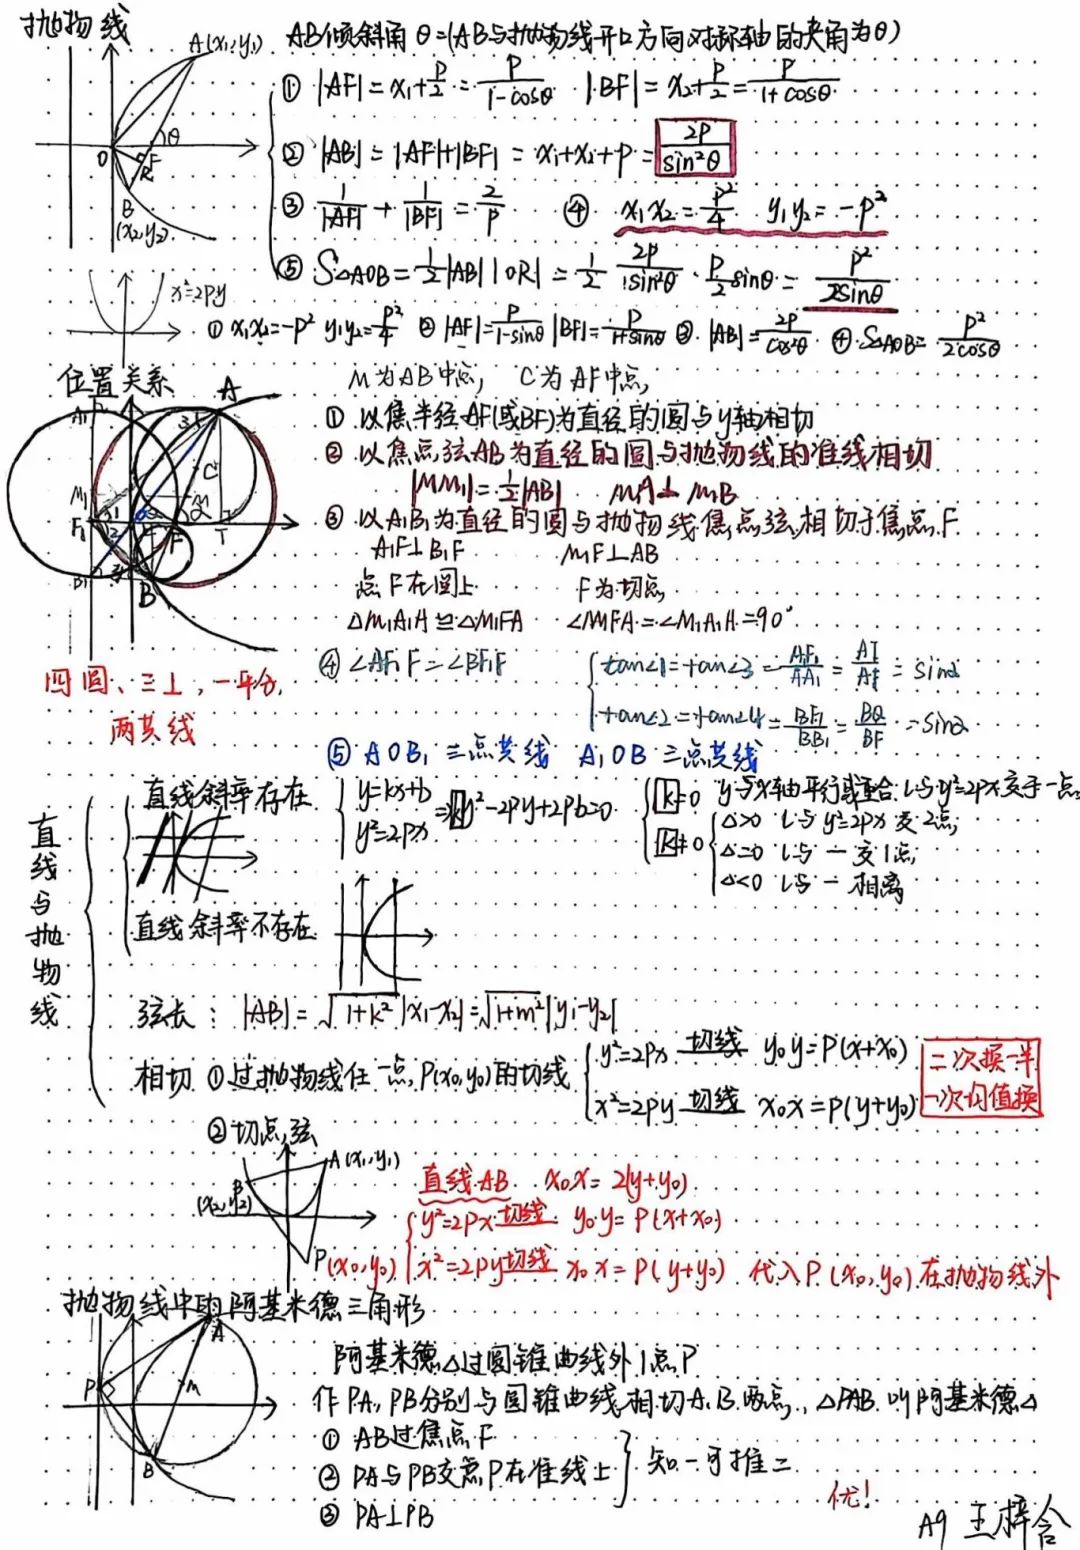 抛物线
A(x₁,y₁)
AB倾斜角θ=(AB与抛物线开口方向对称轴的夹角为θ)
① |AF|=x₁+p/2=p/(1-cosθ) |BF|=x₂+p/2=p/(1+cosθ)
② |AB|=|AF|+|BF|=x₁+x₂+p=2p/sin²θ
③ 1/|AF|+1/|BF|=2/p ④ x₁x₂=p²/4 y₁y₂=-p²
⑤ S△AOB=1/2|AB||OR|=1/2·2p/sin²θ·p/2 sinθ=p²/2sinθ
O F R θ
B
(x₂,y₂)
x²=2py
① x₁x₂=-p² y₁y₂=p²/4 ② |AF|=p/(1-sinθ) |BF|=p/(1+sinθ) ③ |AB|=2p/cos²θ ④ S△AOB=p²/2cosθ
位置关系
M为AB中点, C为AF中点,
① 以焦半径AF(或BF)为直径的圆与y轴相切
② 以焦点弦AB为直径的圆与抛物线的准线相切
|MM₁|=1/2|AB| M₁A⊥M₁B
③ 以A₁B₁为直径的圆与抛物线焦点弦相切于焦点F.
A₁F⊥B₁F M₁F⊥AB
点F在圆上 F为切点
△M₁A₁A≌△M₁FA ∠M₁FA=∠M₁A₁A=90°
④ ∠AF₁F=∠BF₁F
tan∠1=tan∠3=A₁F₁/AA₁=AT/AF=sinα
tan∠2=tan∠4=BF₁/BB₁=BQ/BF=sinα
⑤ AOB₁三点共线 A₁OB三点共线
A A₁ C M₁ F₁ F T B₁ B
四圆、三⊥,一平分,
两共线
直线与抛物线
直线斜率存在
y=kx+b
y²=2px
⇒ky²-2py+2pb=0
k=0 y与x轴平行或重合.l与y²=2px交于一点
k≠0
△>0 l与y²=2px交2点
△=0 l与一交1点
△<0 l与一相离
直线斜率不存在
弦长: |AB|=√(1+k²)|x₁-x₂|=√(1+m²)|y₁-y₂|
相切 ①过抛物线任一点P(x₀,y₀)的切线
y²=2px 切线 y₀y=P(x+x₀)
x²=2py 切线 x₀x=P(y+y₀)
二次换一半
一次均值换
②切点弦
A(x₁,y₁)
B
(x₂,y₂)
P(x₀,y₀)
直线AB x₀x=2(y+y₀)
y²=2px切线 y₀y=P(x+x₀)
x²=2py切线 x₀x=P(y+y₀) 代入P(x₀,y₀)在抛物线外
抛物线中的阿基米德三角形
A P M B
阿基米德△过圆锥曲线外1点P
作PA,PB分别与圆锥曲线相切A.B两点,△PAB叫阿基米德△
① AB过焦点F
② PA与PB交点P在准线上
③ PA⊥PB
知一可推二
优!
A9 王梓含